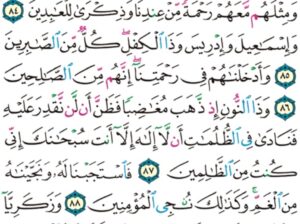 وَمِثْلَهُم مَّعَهُمْ رَحْمَةً مِّنْ عِندِنَا وَذِكْرَىٰ لِلْعَٰبِدِينَ ٨٤
وَإِسْمَٰعِيلَ وَإِدْرِيسَ وَذَا ٱلْكِفْلِ ۖ كُلٌّ مِّنَ ٱلصَّٰبِرِينَ
٨٥ وَأَدْخَلْنَٰهُمْ فِى رَحْمَتِنَآ ۖ إِنَّهُم مِّنَ ٱلصَّٰلِحِينَ
٨٦ وَذَا ٱلنُّونِ إِذ ذَّهَبَ مُغَٰضِبًا فَظَنَّ أَن لَّن نَّقْدِرَ عَلَيْهِ
فَنَادَىٰ فِى ٱلظُّلُمَٰتِ أَن لَّآ إِلَٰهَ إِلَّآ أَنتَ سُبْحَٰنَكَ إِنِّى
كُنتُ مِنَ ٱلظَّٰلِمِينَ ٨٧ فَٱسْتَجَبْنَا لَهُۥ وَنَجَّيْنَٰهُ
مِنَ ٱلْغَمِّ ۚ وَكَذَٰلِكَ نُۨجِى ٱلْمُؤْمِنِينَ ٨٨ وَزَكَرِيَّآ